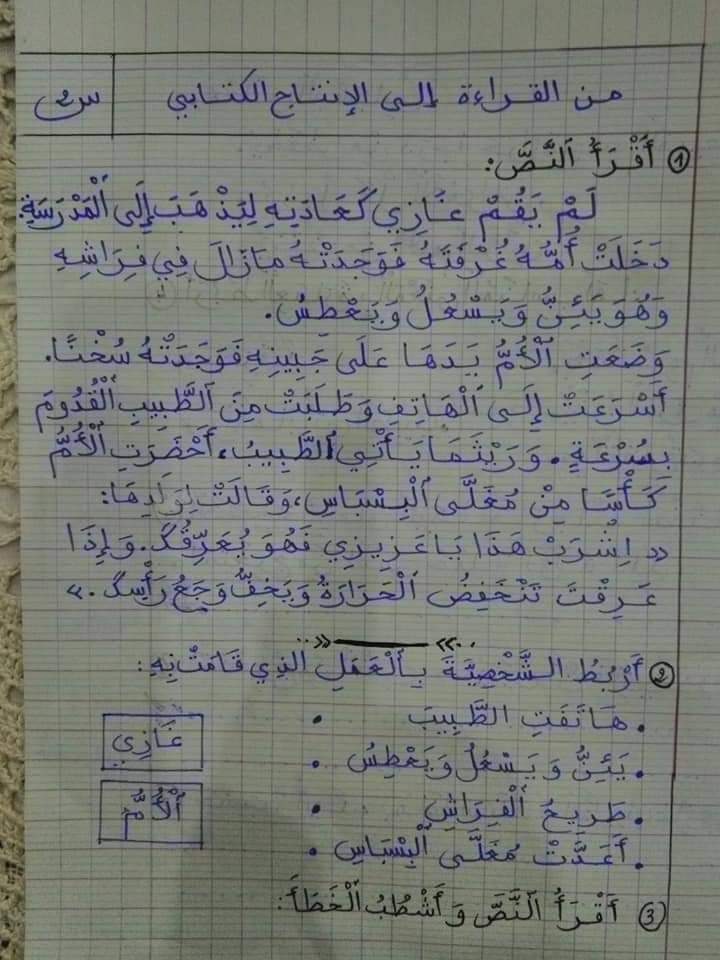 من القراءة إلى الإنتاج الكتابي س2
① أَقْرَأُ النَّصَّ:
لَمْ يَقُمْ غَازِي كَعَادَتِهِ لِيَذْهَبَ إِلَى الْمَدْرَسَةِ.
دَخَلَتْ أُمُّهُ غُرْفَتَهُ فَوَجَدَتْهُ مَازَالَ فِي فِرَاشِهِ
وَهُوَ يَئِنُّ وَيَسْعُلُ وَيَعْطِسُ.
وَضَعَتِ الْأُمُّ يَدَهَا عَلَى جَبِينِهِ فَوَجَدَتْهُ سُخْنًا.
أَسْرَعَتْ إِلَى الْهَاتِفِ وَطَلَبَتْ مِنَ الطَّبِيبِ الْقُدُومَ
بِسُرْعَةٍ. وَرَيْثَمَا يَأْتِي الطَّبِيبُ، أَحْضَرَتِ الْأُمُّ
كَأْسًا مِنْ مُغَلَّى الْبِسْبَاسِ، وَقَالَتْ لِوَلَدِهَا:
« اِشْرَبْ هَذَا يَا عَزِيزِي فَهُوَ يُعَرِّقُكَ. وَإِذَا
عَرِقْتَ تَنْخَفِضُ الْحَرَارَةُ وَيَخِفُّ وَجَعُ رَأْسِكَ. »
② أَرْبُطُ الشَّخْصِيَّةَ بِالْعَمَلِ الذِي قَامَتْ بِهِ:
. هَاتَفَتِ الطَّبِيبَ •
غَازِي
. يَئِنُّ وَيَسْعُلُ وَيَعْطِسُ •
. طَرِيحُ الْفِرَاشِ •
الْأُمُّ
. أَعَدَّتْ مُغَلَّى الْبِسْبَاسِ •
③ أَقْرَأُ النَّصَّ وَأَشْطُبُ الْخَطَأَ: